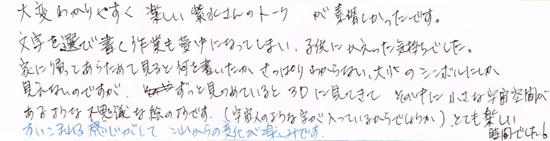 大変わかりやすく 楽しい 紫水さんのトーク が素晴しかったです。
文字を選び書く作業も夢中になってしまい、子供にかえった気持ちでした。
家に帰ってあらためて見ると何を書いたか さっぱりわからない、大小のシンボルにしか
見えないのですが、ずっと見つめていると 3Dに見えてきて その中に 小さな宇宙空間が
あるような 不思議な絵のようです。(宇宙人のような字が入っているからでしょうか) とても楽しい
時間でした。
すいこまれる感じがして これからの変化が楽しみです。